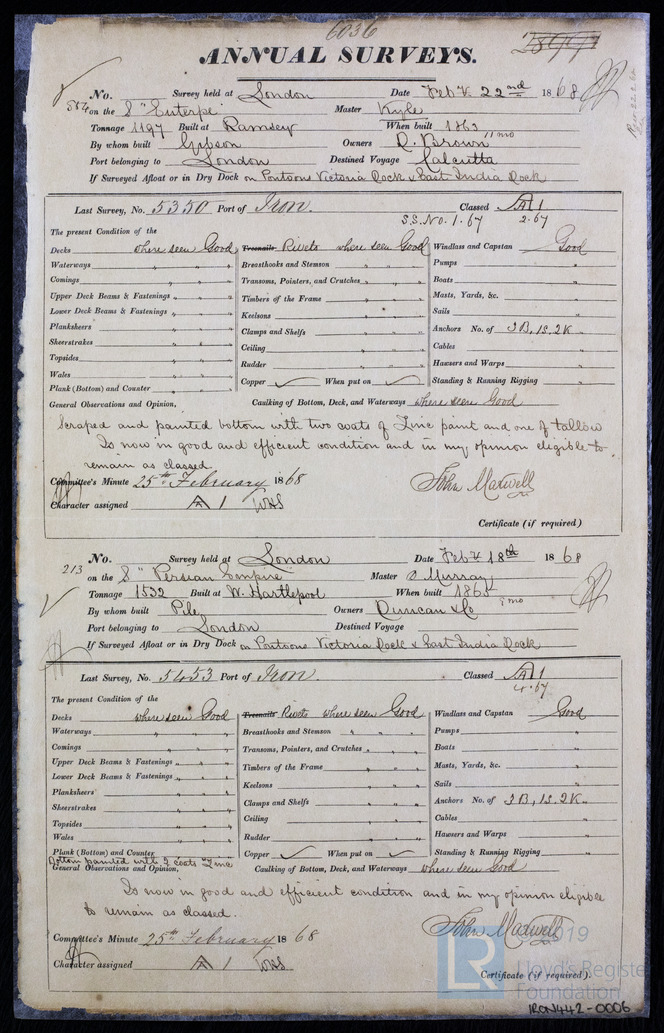 6036
ANNUAL SURVEYS.
No. Survey held at London Date Feby 22nd 1868
on the S "Euterpe" Master Kyle
Tonnage 1197 Built at Ramsey When built 1863 11 mo
By whom built Gibson Owners D. Brown
Port belonging to London Destined Voyage Calcutta
If Surveyed Afloat or in Dry Dock on Pontoons Victoria Dock & East India Dock
Last Survey, No. 5350 Port of Iron. Classed A 1
S.S. No. 1. 67 2.67
The present Condition of the
Decks where seen Good Treenails Rivets where seen Good Windlass and Capstan Good
Waterways " " Breasthooks and Stemson " " Pumps "
Comings " " Transoms, Pointers, and Crutches " " Boats "
Upper Deck Beams & Fastenings " " Timbers of the Frame " " Masts, Yards, &c. "
Lower Deck Beams & Fastenings " " Keelsons " " Sails "
Planksheers " " Clamps and Shelfs " " Anchors No. of 3B, 1S, 2K
Sheerstrakes " " Ceiling " " Cables "
Topsides " " Rudder " " Hawsers and Warps "
Wales " " Copper When put on Standing & Running Rigging "
Plank (Bottom) and Counter " "
General Observations and Opinion, Caulking of Bottom, Deck, and Waterways where seen Good
Scraped and painted bottom with two coats of Zinc paint and one of tallow
Is now in good and efficient condition and in my opinion eligible to
remain as classed.
Committee's Minute 25th February 1868 John Maxwell
Character assigned A 1
Certificate (if required)
No. Survey held at London Date Feby 18th 1868
213
on the S "Persian Empire" Master O Murray
Tonnage 1532 Built at W. Hartlepool When built 1865 mo
By whom built Pile Owners Duncan & Co
Port belonging to London Destined Voyage
If Surveyed Afloat or in Dry Dock on Pontoons Victoria Dock & East India Dock
Last Survey, No. 5453 Port of Iron. Classed A 1
4.67
The present Condition of the
Decks where seen Good Treenails Rivets where seen Good Windlass and Capstan Good
Waterways " " Breasthooks and Stemson " " Pumps "
Comings " " Transoms, Pointers, and Crutches " " Boats "
Upper Deck Beams & Fastenings " " Timbers of the Frame " " Masts, Yards, &c. "
Lower Deck Beams & Fastenings " " Keelsons " " Sails "
Planksheers " " Clamps and Shelfs " " Anchors No. of 3B, 1S, 2K
Sheerstrakes " " Ceiling " " Cables "
Topsides " " Rudder " " Hawsers and Warps "
Wales " " Copper When put on Standing & Running Rigging "
Plank (Bottom) and Counter
Bottom painted with 2 coats Zinc
General Observations and Opinion, Caulking of Bottom, Deck, and Waterways where seen Good
Is now in good and efficient condition and in my opinion eligible
to remain as classed.
Committee's Minute 25th February 1868 John Maxwell
Character assigned A 1
Certificate (if required).
LR ©2019
Lloyd's Register
Foundation
IRON442-0006